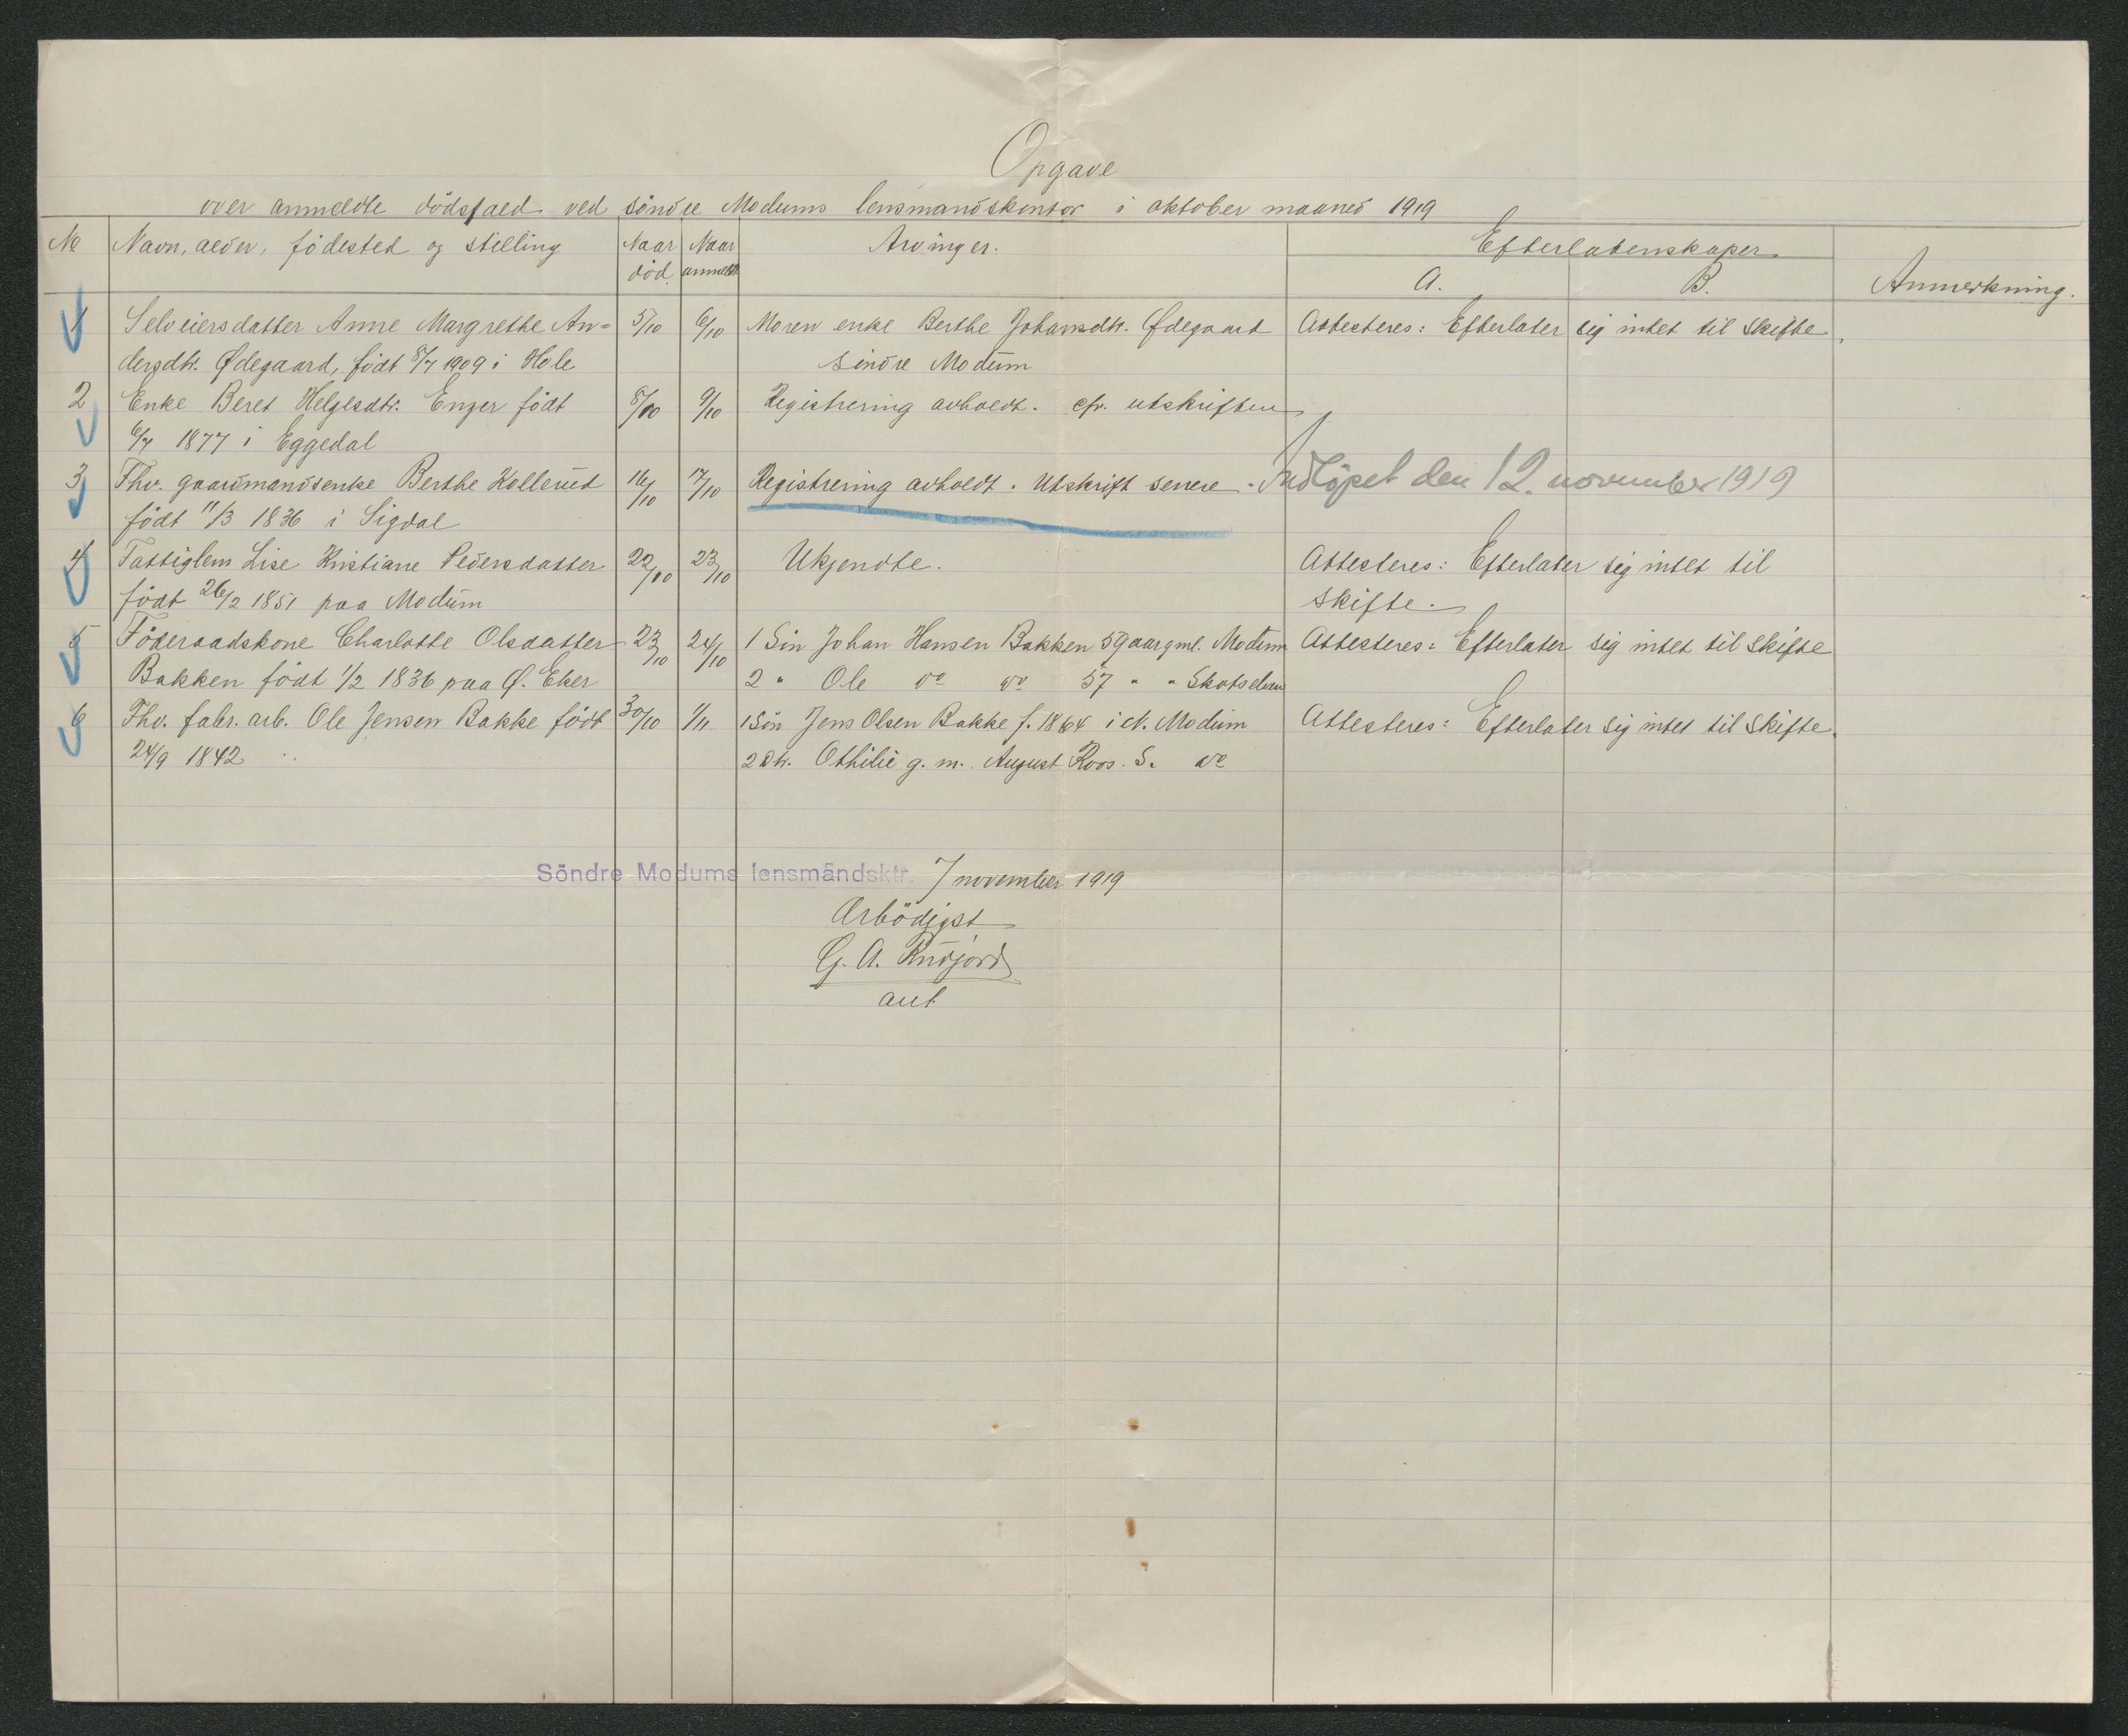 Opgave
over anmeldte dödsfald ved söndre Modums lensmandskontor i oktober maaned 1919
No Navn, alder, födested og stilling Naar död. Naar anmeldt Arvinger. Efterladenskaper A. B. Anmerkning.
1 Selveiersdatter Anne Margrethe An= 5/10 6/10 Moren enke Berthe Johansdtr. Ødegaard Attesteres: Efterlater sig intet til skifte.
dersdtr. Ødegaard, födt 8/7 1909 i Hole söndre Modum
2 Enke Beret Helgesdtr. Enger födt 8/10 9/10 Registrering avholdt. cfr. utskriften
6/7 1877 i Eggedal
3 Fhv. gaardmandsenke Berthe Kollerud 16/10 17/10 Registrering avholdt. Utskrift senere. Indlöpet den 12. november 1919
födt 11/3 1836 i Sigdal
4 Fattiglem Lise Kristiane Pedersdatter 22/10 23/10 Ukjendte. Attesteres: Efterlater sig intet til
födt 26/2 1851 paa Modum skifte.
5 Föderaadskone Charlotte Olsdatter 23/10 24/10 1 Sön Johan Hansen Bakken 59 aar gml. Modum Attesteres: Efterlater sig intet til skifte
Bakken födt 1/2 1836 paa Ø. Eker 2 " Ole do do 57 " " Skotselven
6 Fhv. fabr. arb. Ole Jensen Bakke födt 30/10 1/11 1 Sön Jens Olsen Bakke f. 1864 i N. Modum Attesteres: Efterlater sig intet til skifte.
24/9 1842 2 Dtr. Othilie g. m. August Roos. S. do
Söndre Modums lensmandsktr. 7 november 1919
Ærbödigst
G. A. Rudjord
aut